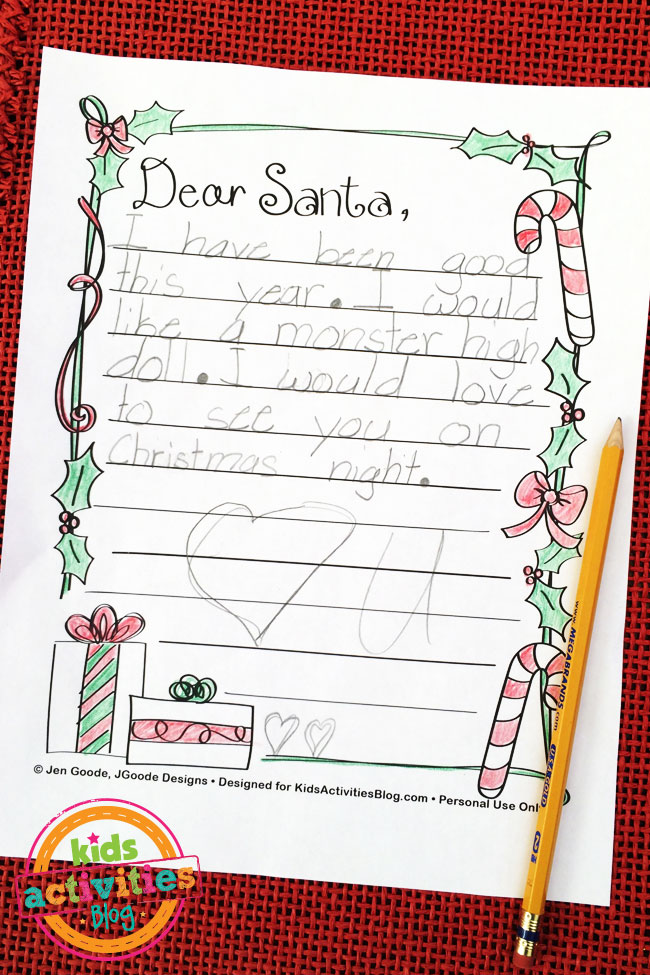 Dear Santa,
I have been good
this year. I would
like a monster high
doll. I would love
to see you on
Christmas night.
U
© Jen Goode, JGoode Designs • Designed for KidsActivitiesBlog.com • Personal Use Onl
www.MEGABRANDS.com
kids
activities
Blog